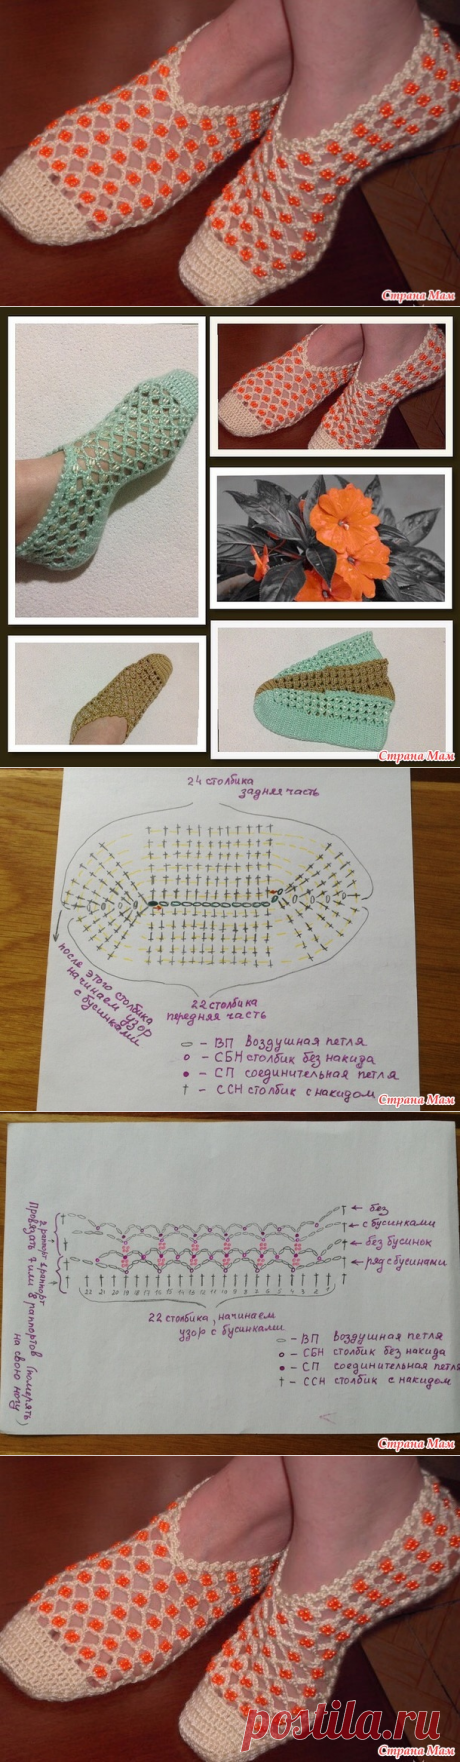 Страна Мам
Страна Мам
24 столбика
задняя часть
после этого столбика
начинаем узор
с бусинками
22 столбика
передняя часть
- ВП воздушная петля
- СБН столбик без накида
- СП соединительная петля
- ССН столбик с накидом
Страна Мам
Провязать 7 или 8 раппортов (померять
на свою ногу)
2 раппорт 1 раппорт
без
с бусинками
без бусинок
ряд с бусинами
22 столбика, начинаем
узор с бусинками
- ВП воздушная петля
- СБН столбик без накида
- СП соединительная петля
- ССН столбик с накидом
Страна Мам
postila.ru
Страна Мам